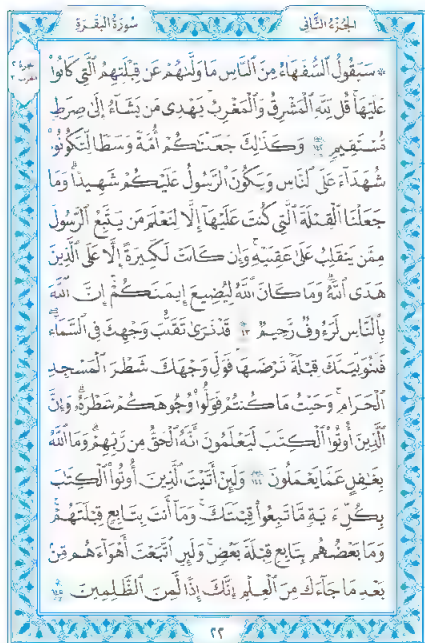 الجزء الثاني
سورة البقرة
سَيَقُولُ ٱلسُّفَهَآءُ مِنَ ٱلنَّاسِ مَا وَلَّىٰهُمْ عَن قِبْلَتِهِمُ ٱلَّتِى كَانُوا۟
عَلَيْهَا قُل لِّلَّهِ ٱلْمَشْرِقُ وَٱلْمَغْرِبُ يَهْدِى مَن يَشَآءُ إِلَىٰ صِرَٰطٍ
مُّسْتَقِيمٍ ١٤٢ وَكَذَٰلِكَ جَعَلْنَٰكُمْ أُمَّةً وَسَطًا لِّتَكُونُوا۟
شُهَدَآءَ عَلَى ٱلنَّاسِ وَيَكُونَ ٱلرَّسُولُ عَلَيْكُمْ شَهِيدًا وَمَا
جَعَلْنَا ٱلْقِبْلَةَ ٱلَّتِى كُنتَ عَلَيْهَآ إِلَّا لِنَعْلَمَ مَن يَتَّبِعُ ٱلرَّسُولَ
مِمَّن يَنقَلِبُ عَلَىٰ عَقِبَيْهِ وَإِن كَانَتْ لَكَبِيرَةً إِلَّا عَلَى ٱلَّذِينَ
هَدَى ٱللَّهُ وَمَا كَانَ ٱللَّهُ لِيُضِيعَ إِيمَٰنَكُمْ إِنَّ ٱللَّهَ
بِٱلنَّاسِ لَرَءُوفٌ رَّحِيمٌ ١٤٣ قَدْ نَرَىٰ تَقَلُّبَ وَجْهِكَ فِى ٱلسَّمَآءِ
فَلَنُوَلِّيَنَّكَ قِبْلَةً تَرْضَىٰهَا فَوَلِّ وَجْهَكَ شَطْرَ ٱلْمَسْجِدِ
ٱلْحَرَامِ وَحَيْثُ مَا كُنتُمْ فَوَلُّوا۟ وُجُوهَكُمْ شَطْرَهُۥ وَإِنَّ
ٱلَّذِينَ أُوتُوا۟ ٱلْكِتَٰبَ لَيَعْلَمُونَ أَنَّهُ ٱلْحَقُّ مِن رَّبِّهِمْ وَمَا ٱللَّهُ
بِغَٰفِلٍ عَمَّا يَعْمَلُونَ ١٤٤ وَلَئِنْ أَتَيْتَ ٱلَّذِينَ أُوتُوا۟ ٱلْكِتَٰبَ
بِكُلِّ ءَايَةٍ مَّا تَبِعُوا۟ قِبْلَتَكَ وَمَآ أَنتَ بِتَابِعٍ قِبْلَتَهُمْ
وَمَا بَعْضُهُم بِتَابِعٍ قِبْلَةَ بَعْضٍ وَلَئِنِ ٱتَّبَعْتَ أَهْوَآءَهُم مِّنۢ
بَعْدِ مَا جَآءَكَ مِنَ ٱلْعِلْمِ إِنَّكَ إِذًا لَّمِنَ ٱلظَّٰلِمِينَ ١٤٥
٢٢